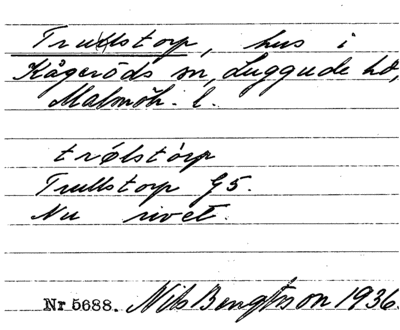 Trullstorp, hus i
Kågeröds sn, Luggude hd,
Malmöh. l.
trölstórp
Trullstorp G5.
Nu rivet.
Nr 5688. Nils Bengtsson 1936.